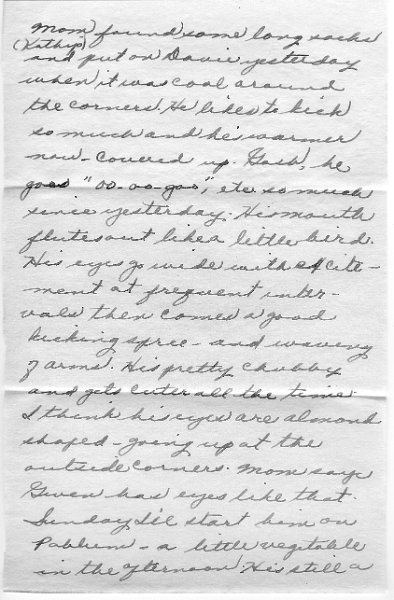 Mom found some long socks
(Kathy's)
and put on Davie yesterday
when it was cool around
the corners. He likes to kick
so much and he's warmer
now - covered up. Gosh, he
goes "oo-oo-goo", etc so much
since yesterday. His mouth
flutes out like a little bird.
His eyes go wide with excite-
ment at frequent inter-
vals then comes a good
kicking spree - and waving
of arms. His pretty chubby
and gets cuter all the time.
I think his eyes are almond
shaped - going up at the
outside corners. Mom says
Gwen has eyes like that.
Sunday I'll start him on
Pablum - a little vegetable
in the afternoon. His still a